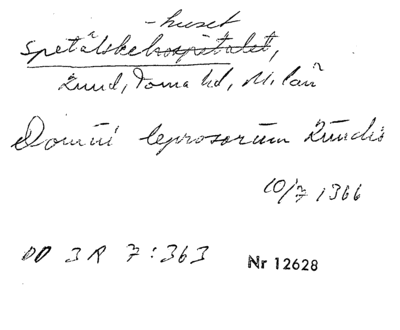 -huset
Spetålskehospitalet,
Lund, Torna hd, M.län
Domui leprosorum Lundis
10/7 1366
DD 3R 7:363
Nr 12628